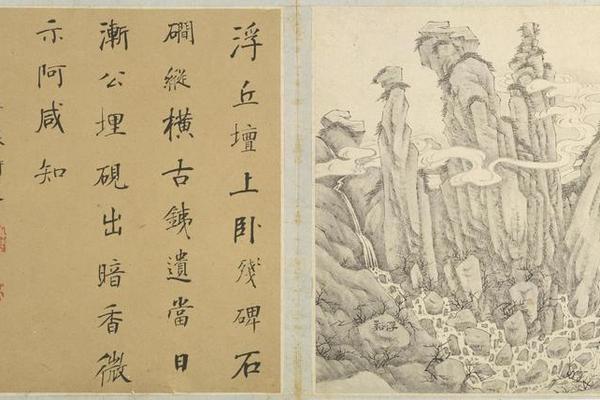 浮丘壇上卧残碑石
磵縱橫古銕遺當日
漸公埋硯出暗香微
示阿咸知